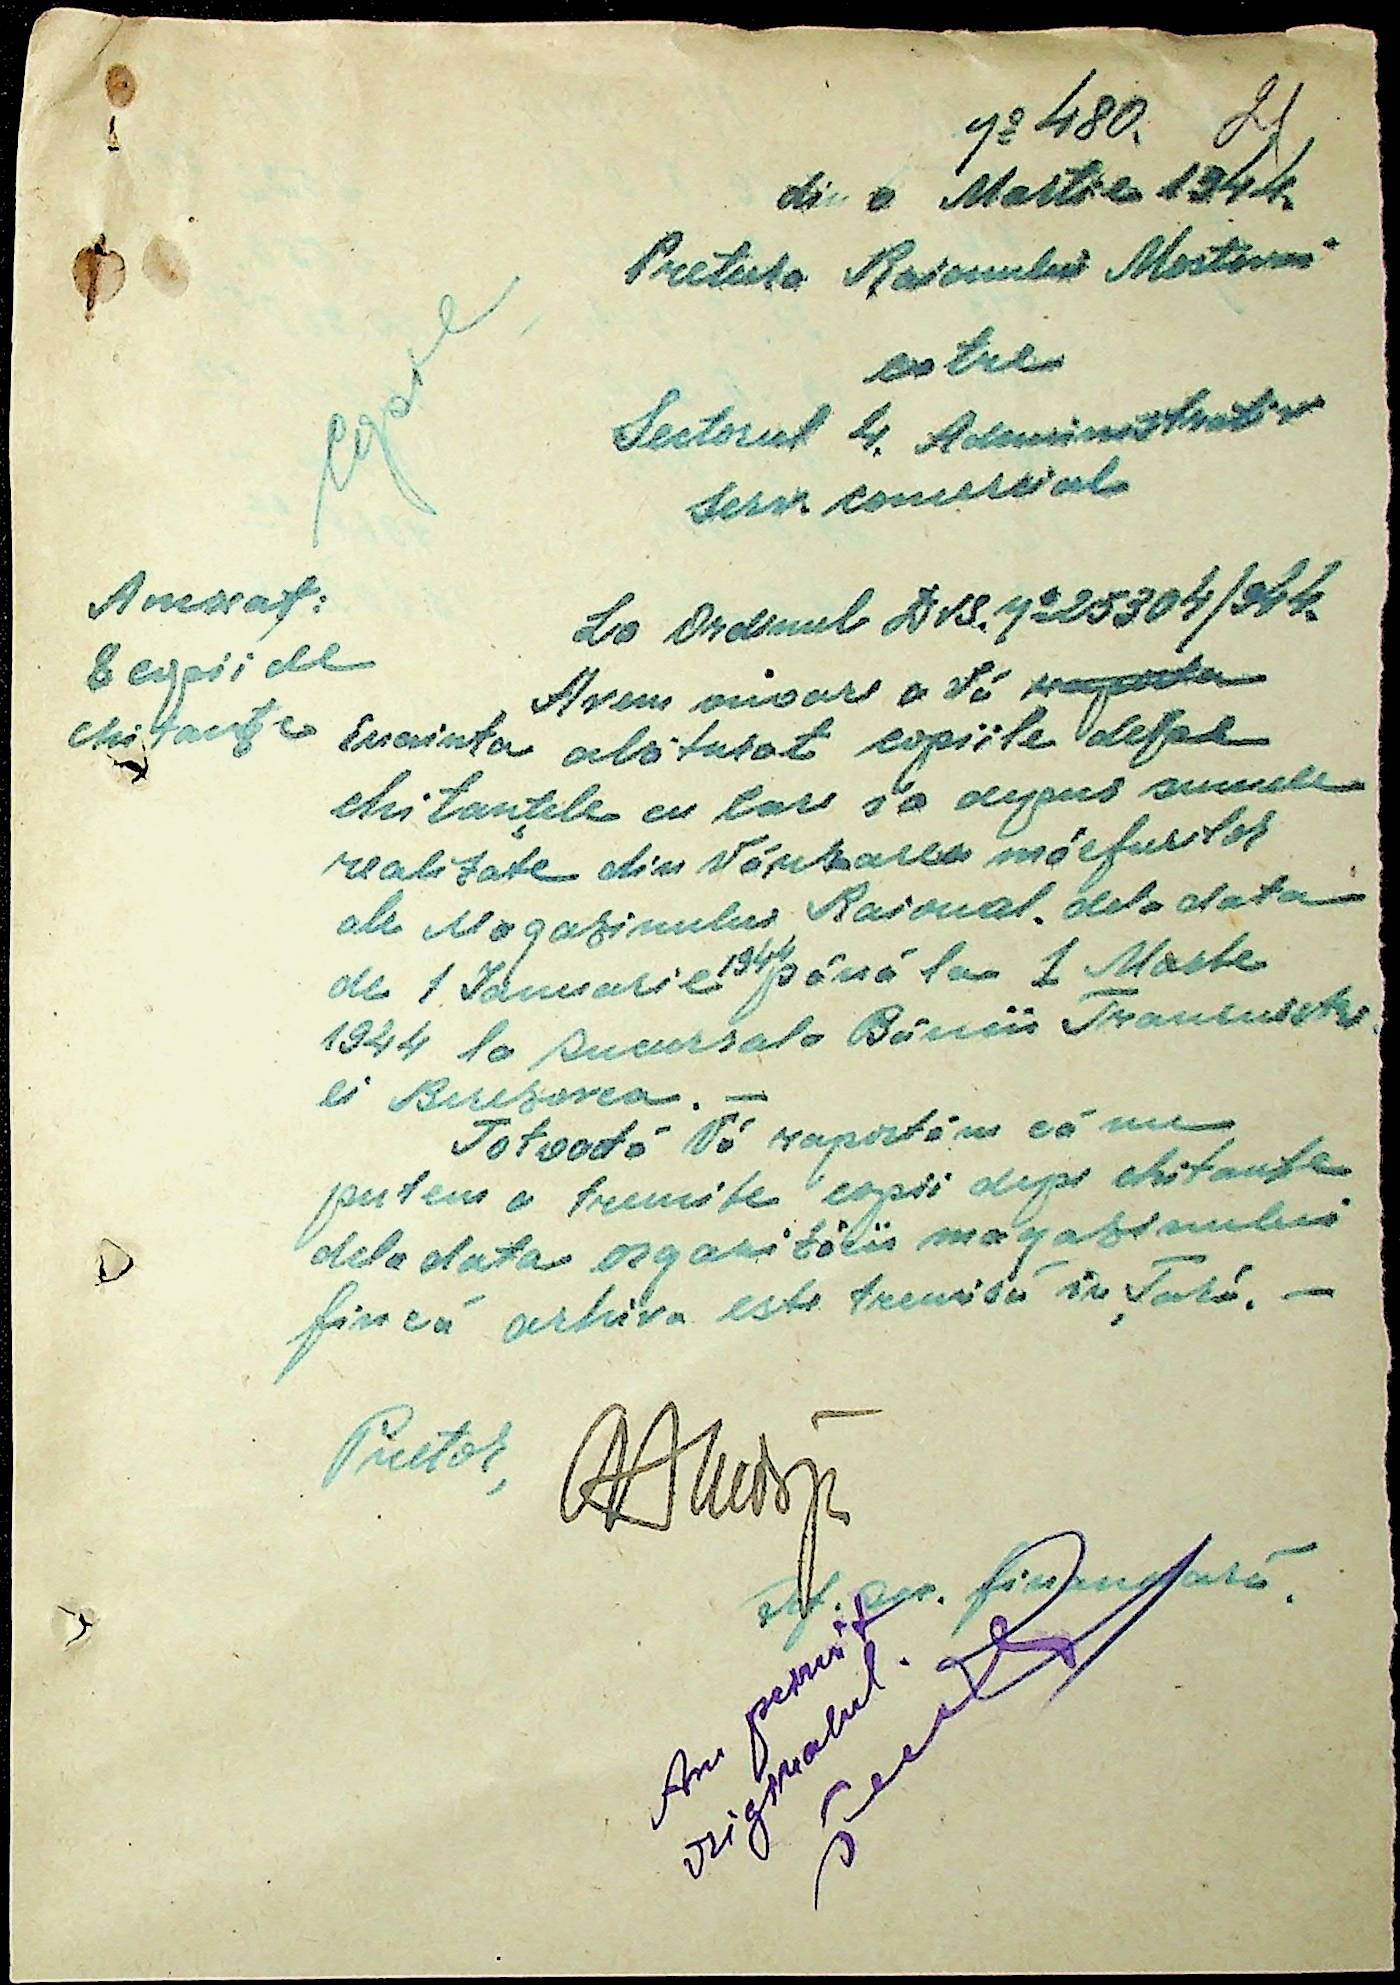 Nº 480. 21
din 0 Martie 1944.
Pretura Raionului Mostovoi
catre
Sectorul 4. Administrativ
Serv. Comercial
Copie
Anexat:
8 copii de
chitanțe
La Ordinul DVS. Nº 25304/944.
Avem onoare a Vă raporta
înainta alăturat copiile depe
chitanțele cu care s'a depus sumele
realizate din Vânzarea mărfurilor
ale Magazinului Raional. dela data
de 1 Ianuarie 1944 până la 1 Marte
1944 la Sucursala Băncii Transnistri
ei Berezovca. —
Totodată Vă raportăm că nu
putem a tremite copii depe chitanțe
dela data organizării magazinului
fincă arhiva este tremisă în Țară. —
Pretor,
Șef. sec. financiară.
Am primit
originalul.